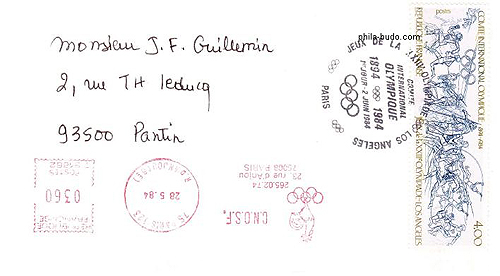 phila-budo.com
Monsieur J. F. Guillemin
2, rue TH leducq
93500 Pantin
JEUX DE LA XXIIIe OLYMPIADE LOS ANGELES
COMITÉ
INTERNATIONAL
OLYMPIQUE
1894 1984
1er JOUR - 2 JUIN 1984
PARIS
postes
COMITE INTERNATIONAL OLYMPIQUE 1894-1984
REPUBLIQUE FRANÇAISE
4,00
0360
28 5 84
75 PARIS 123
C.N.O.S.F.
23, rue d'Anjou
75008 PARIS
265.02.74